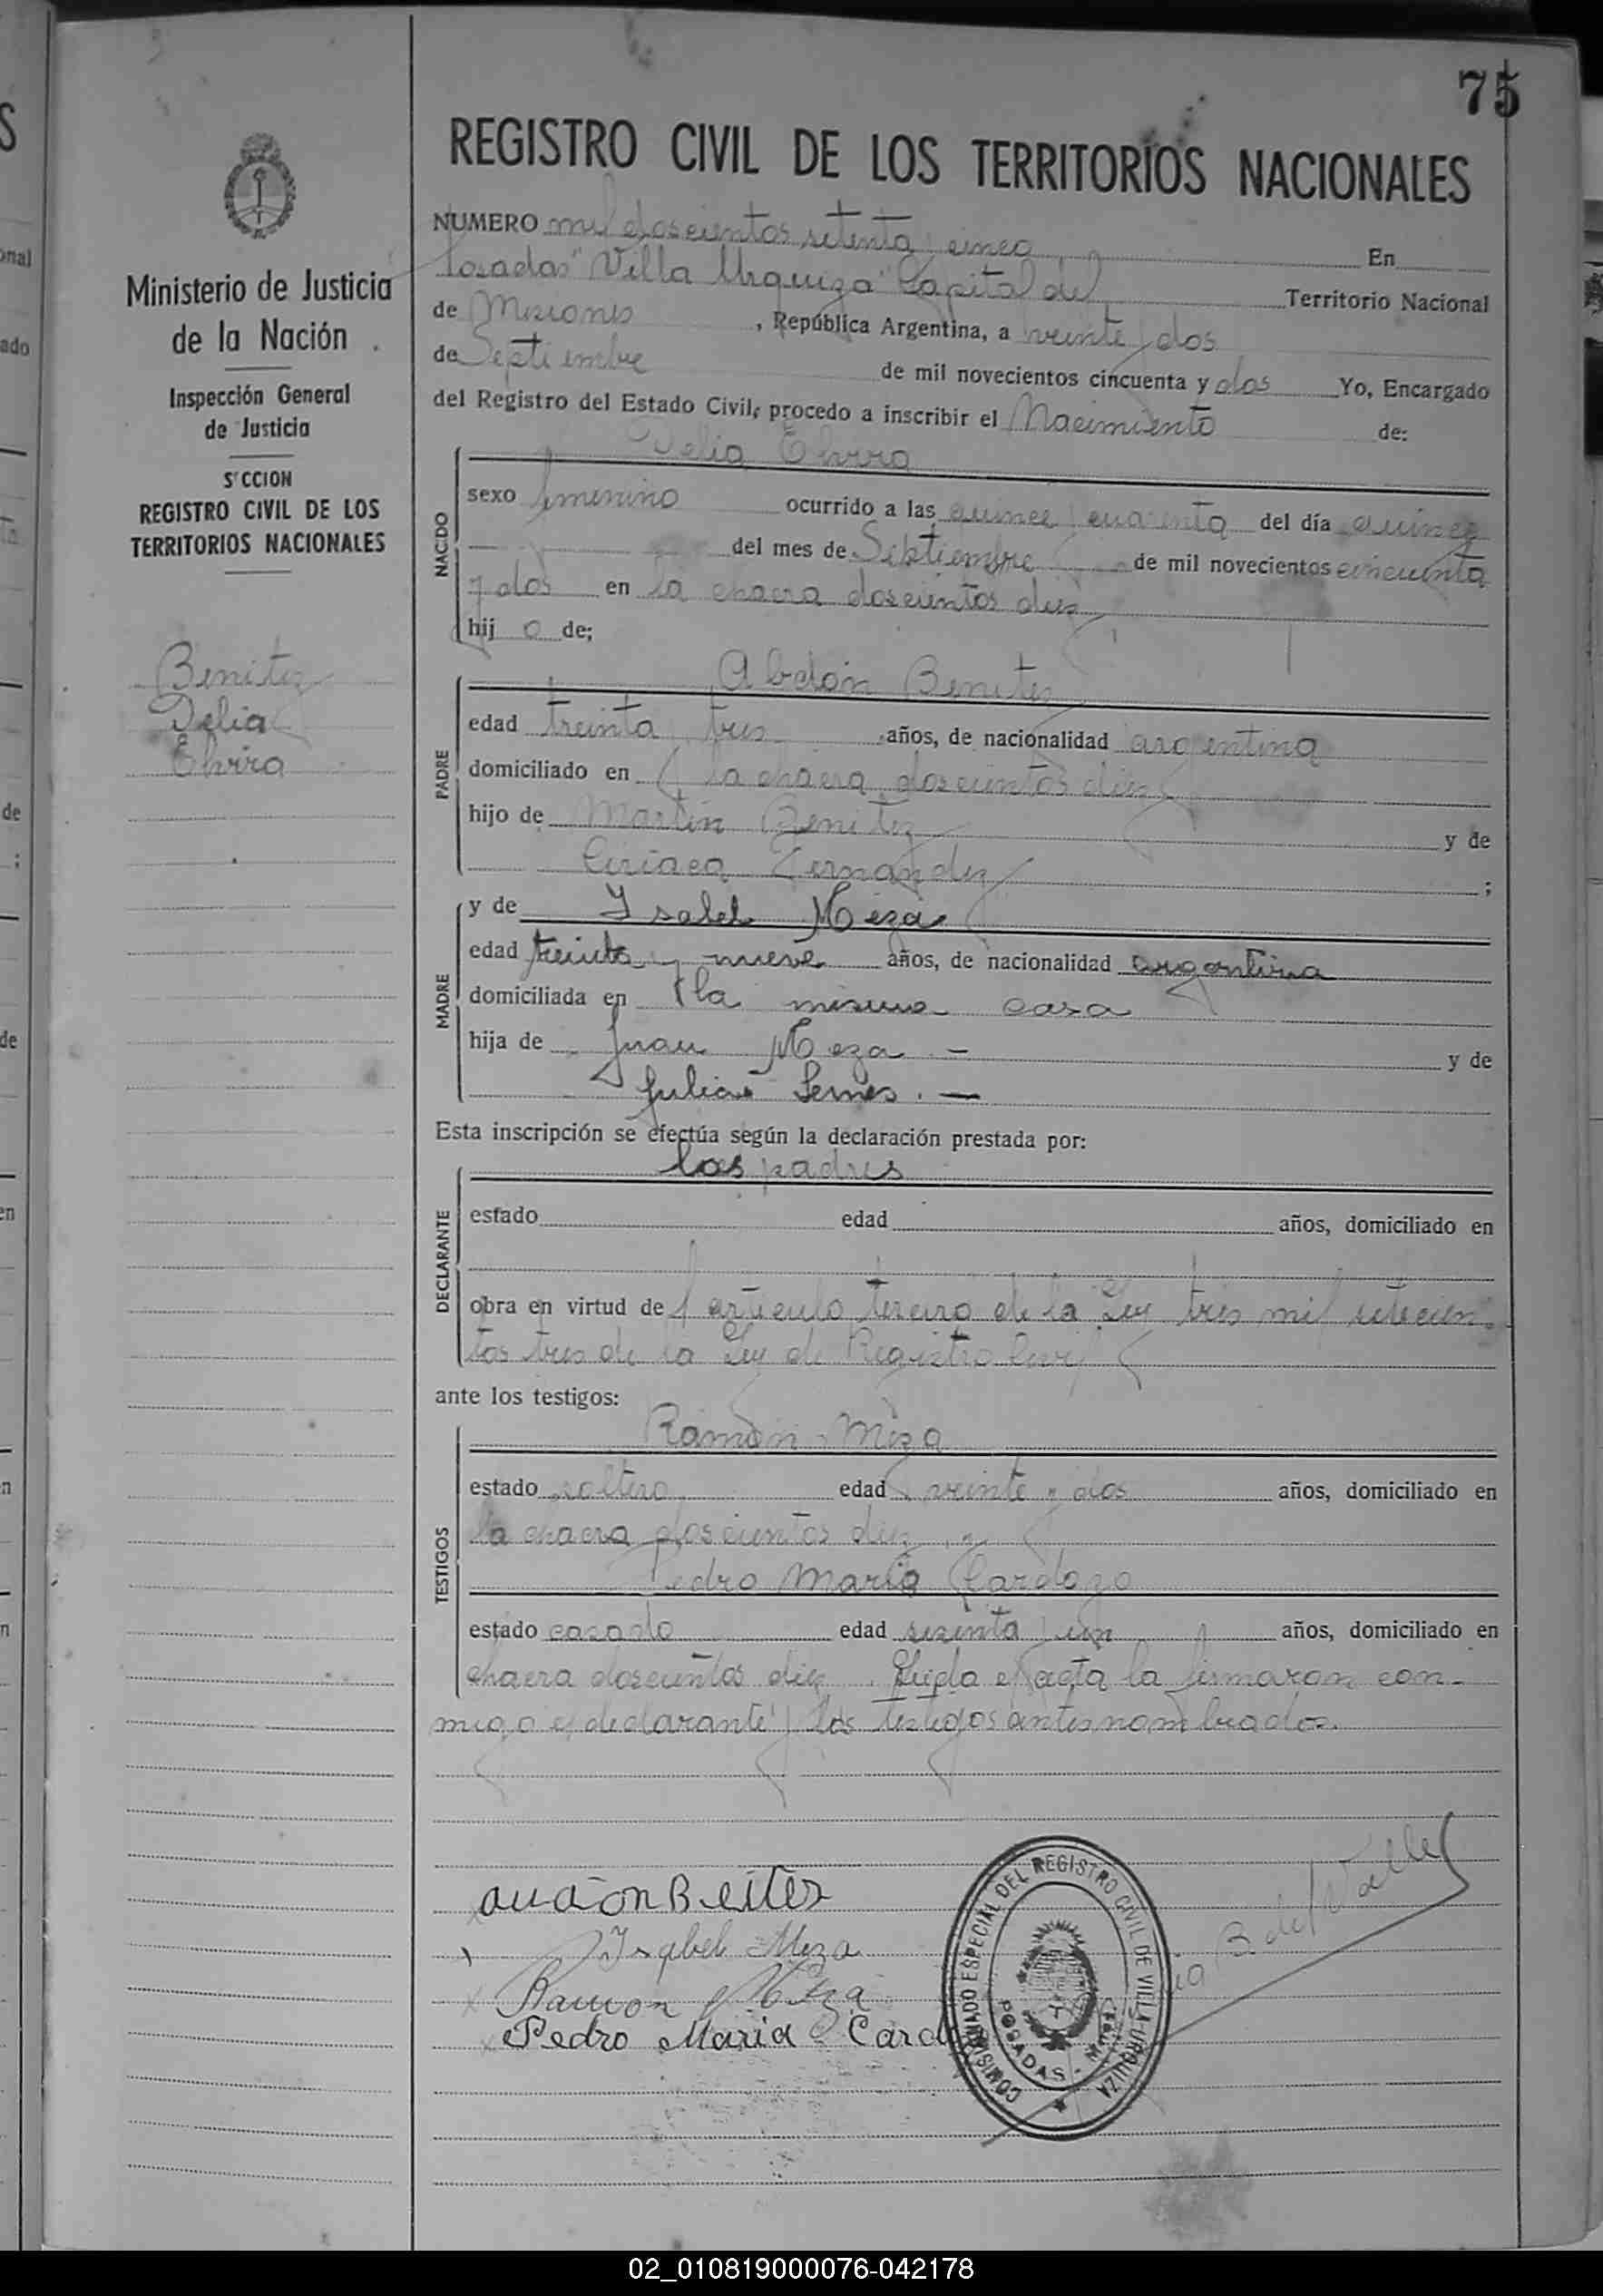 75
REGISTRO CIVIL DE LOS TERRITORIOS NACIONALES
Ministerio de Justicia
de la Nación
Inspección General
de Justicia
S'CCION
REGISTRO CIVIL DE LOS
TERRITORIOS NACIONALES
Benitez
Delia
Elvira
NUMERO mil doscientos setenta y cinco En
Posadas "Villa Urquiza" Capital del Territorio Nacional
de Misiones, República Argentina, a veinte y dos
de Septiembre de mil novecientos cincuenta y dos Yo, Encargado
del Registro del Estado Civil, procedo a inscribir el Nacimiento de:
Delia Elvira
NACIDO
sexo femenino ocurrido a las quince y cuarenta del día quince
del mes de Septiembre de mil novecientos cincuenta
y dos en la chacra doscientos diez
hij o de;
Abdón Benitez
PADRE
edad treinta y tres años, de nacionalidad argentina
domiciliado en la chacra doscientos diez
hijo de Martin Benitez y de
Ciriaca Fernandez ;
MADRE
y de Ysabel Meza
edad treinta y nueve años, de nacionalidad argentina
domiciliada en la misma casa
hija de Juan Meza . — y de
Julia . —
Esta inscripción se efectúa según la declaración prestada por:
los padres
DECLARANTE
estado edad años, domiciliado en
obra en virtud del articulo tercero de la Ley tres mil setecien-
tos tres de la Ley de Registro Civil
ante los testigos:
TESTIGOS
Ramón Meza
estado soltero edad veinte y dos años, domiciliado en
la chacra doscientos diez y
Pedro María Cardozo
estado casado edad sesenta y un años, domiciliado en
chacra doscientos diez . Leida el acta la firmaron con-
migo el declarante y los testigos antes nombrados.
Ysabel Meza
Ramon Meza
Pedro Maria Card
B del Valle
COMISIONADO ESPECIAL DEL REGISTRO CIVIL DE VILLA URQUIZA
POSADAS - Mnes
02_010819000076-042178